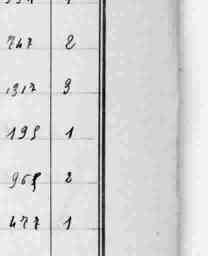 747 2
1317 3
195 1
965 2
477 1